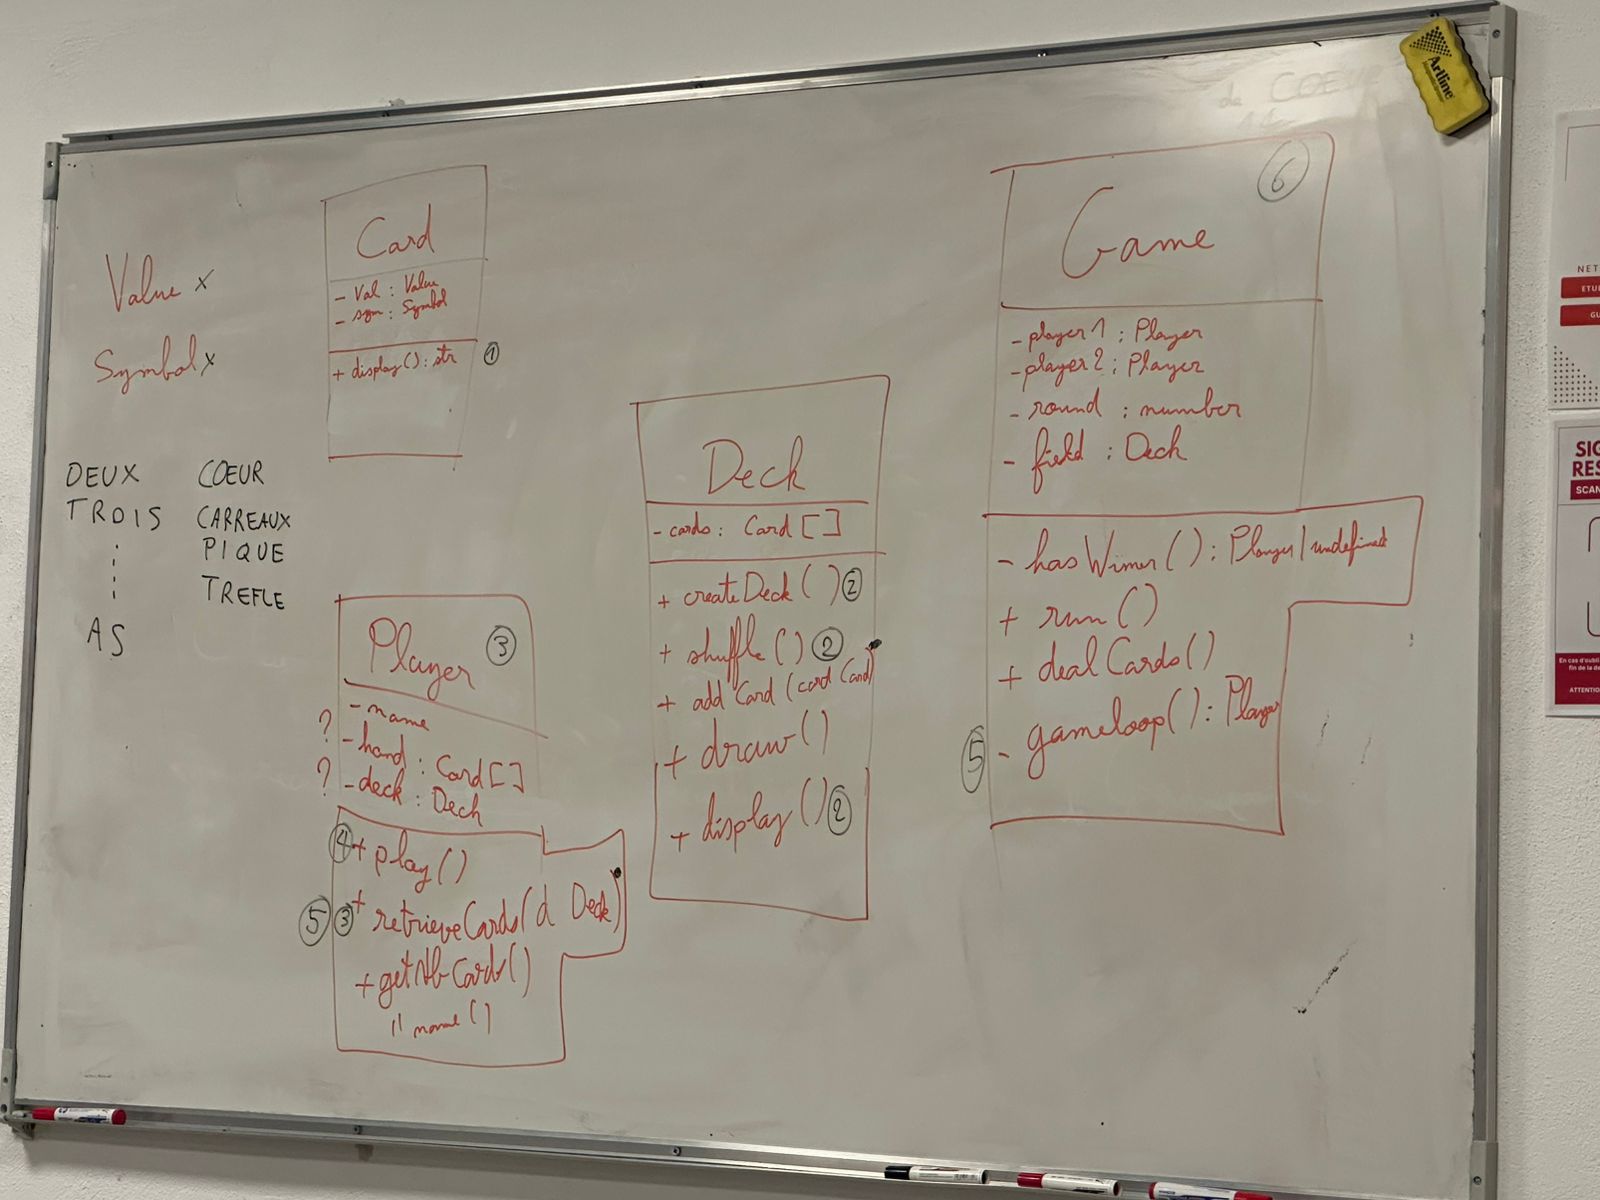 Value x
Symbol x
DEUX
TROIS
AS
COEUR
CARREAUX
PIQUE
TREFLE
Card
- Val : Value
- sym : Symbol
+ display() : str ①
Player ③
- name
? - hand : Card[]
? - deck : Deck
④ + play()
⑤ ③ + retrieveCards(d Deck)
+ getNbCards()
" name()
Deck
- cards : Card []
+ createDeck() ②
+ shuffle() ②
+ addCard (card Card)
+ draw()
+ display() ②
Game ⑥
- player1 : Player
- player2 : Player
- round : number
- field : Deck
- hasWinner() : Player | undefined
+ run()
+ dealCards()
⑤ - gameloop() : Player
de COEUR
Artline
NET
ETU
GU
SIG
RES
SCAN
En cas d'oubli
fin de la de
ATTENTIO